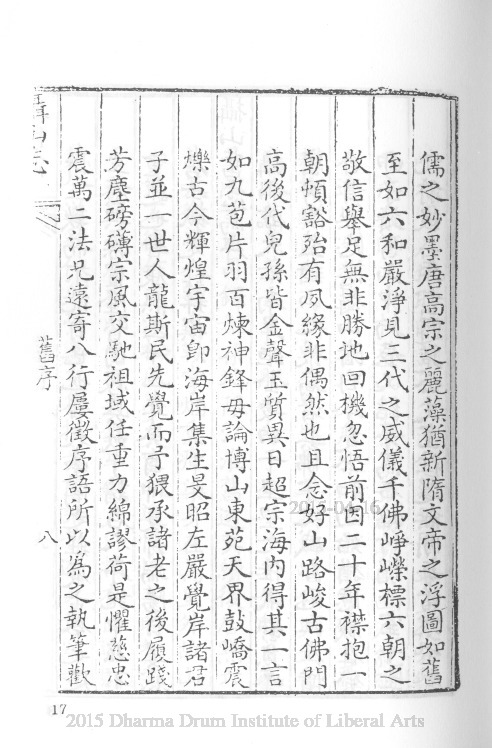 儒之妙墨唐高宗之麗藻猶新隋文帝之浮圖如舊
至如六和嚴淨見三代之威儀千佛崢嶸標六朝之
敬信舉足無非勝地回機忽悟前因二十年襟抱一
朝頓豁殆有夙緣非偶然也且念好山路峻古佛門
高後代兒孫皆金聲玉質異日超宗海內得其一言
如九苞片羽百煉神鋒毋論博山東苑天界鼓嶠震
爍古今輝煌宇宙卽海岸集生旻昭左嚴覺岸諸君
子並一世人龍斯民先覺而予猥承諸老之後履踐
芳塵磅礴宗風交馳祖域任重力綿謬荷是懼慈忠
震萬二法兄遠寄八行屢徵序語所以爲之執筆歡
攝山志
舊序
八
17
2015 Dharma Drum Institute of Liberal Arts